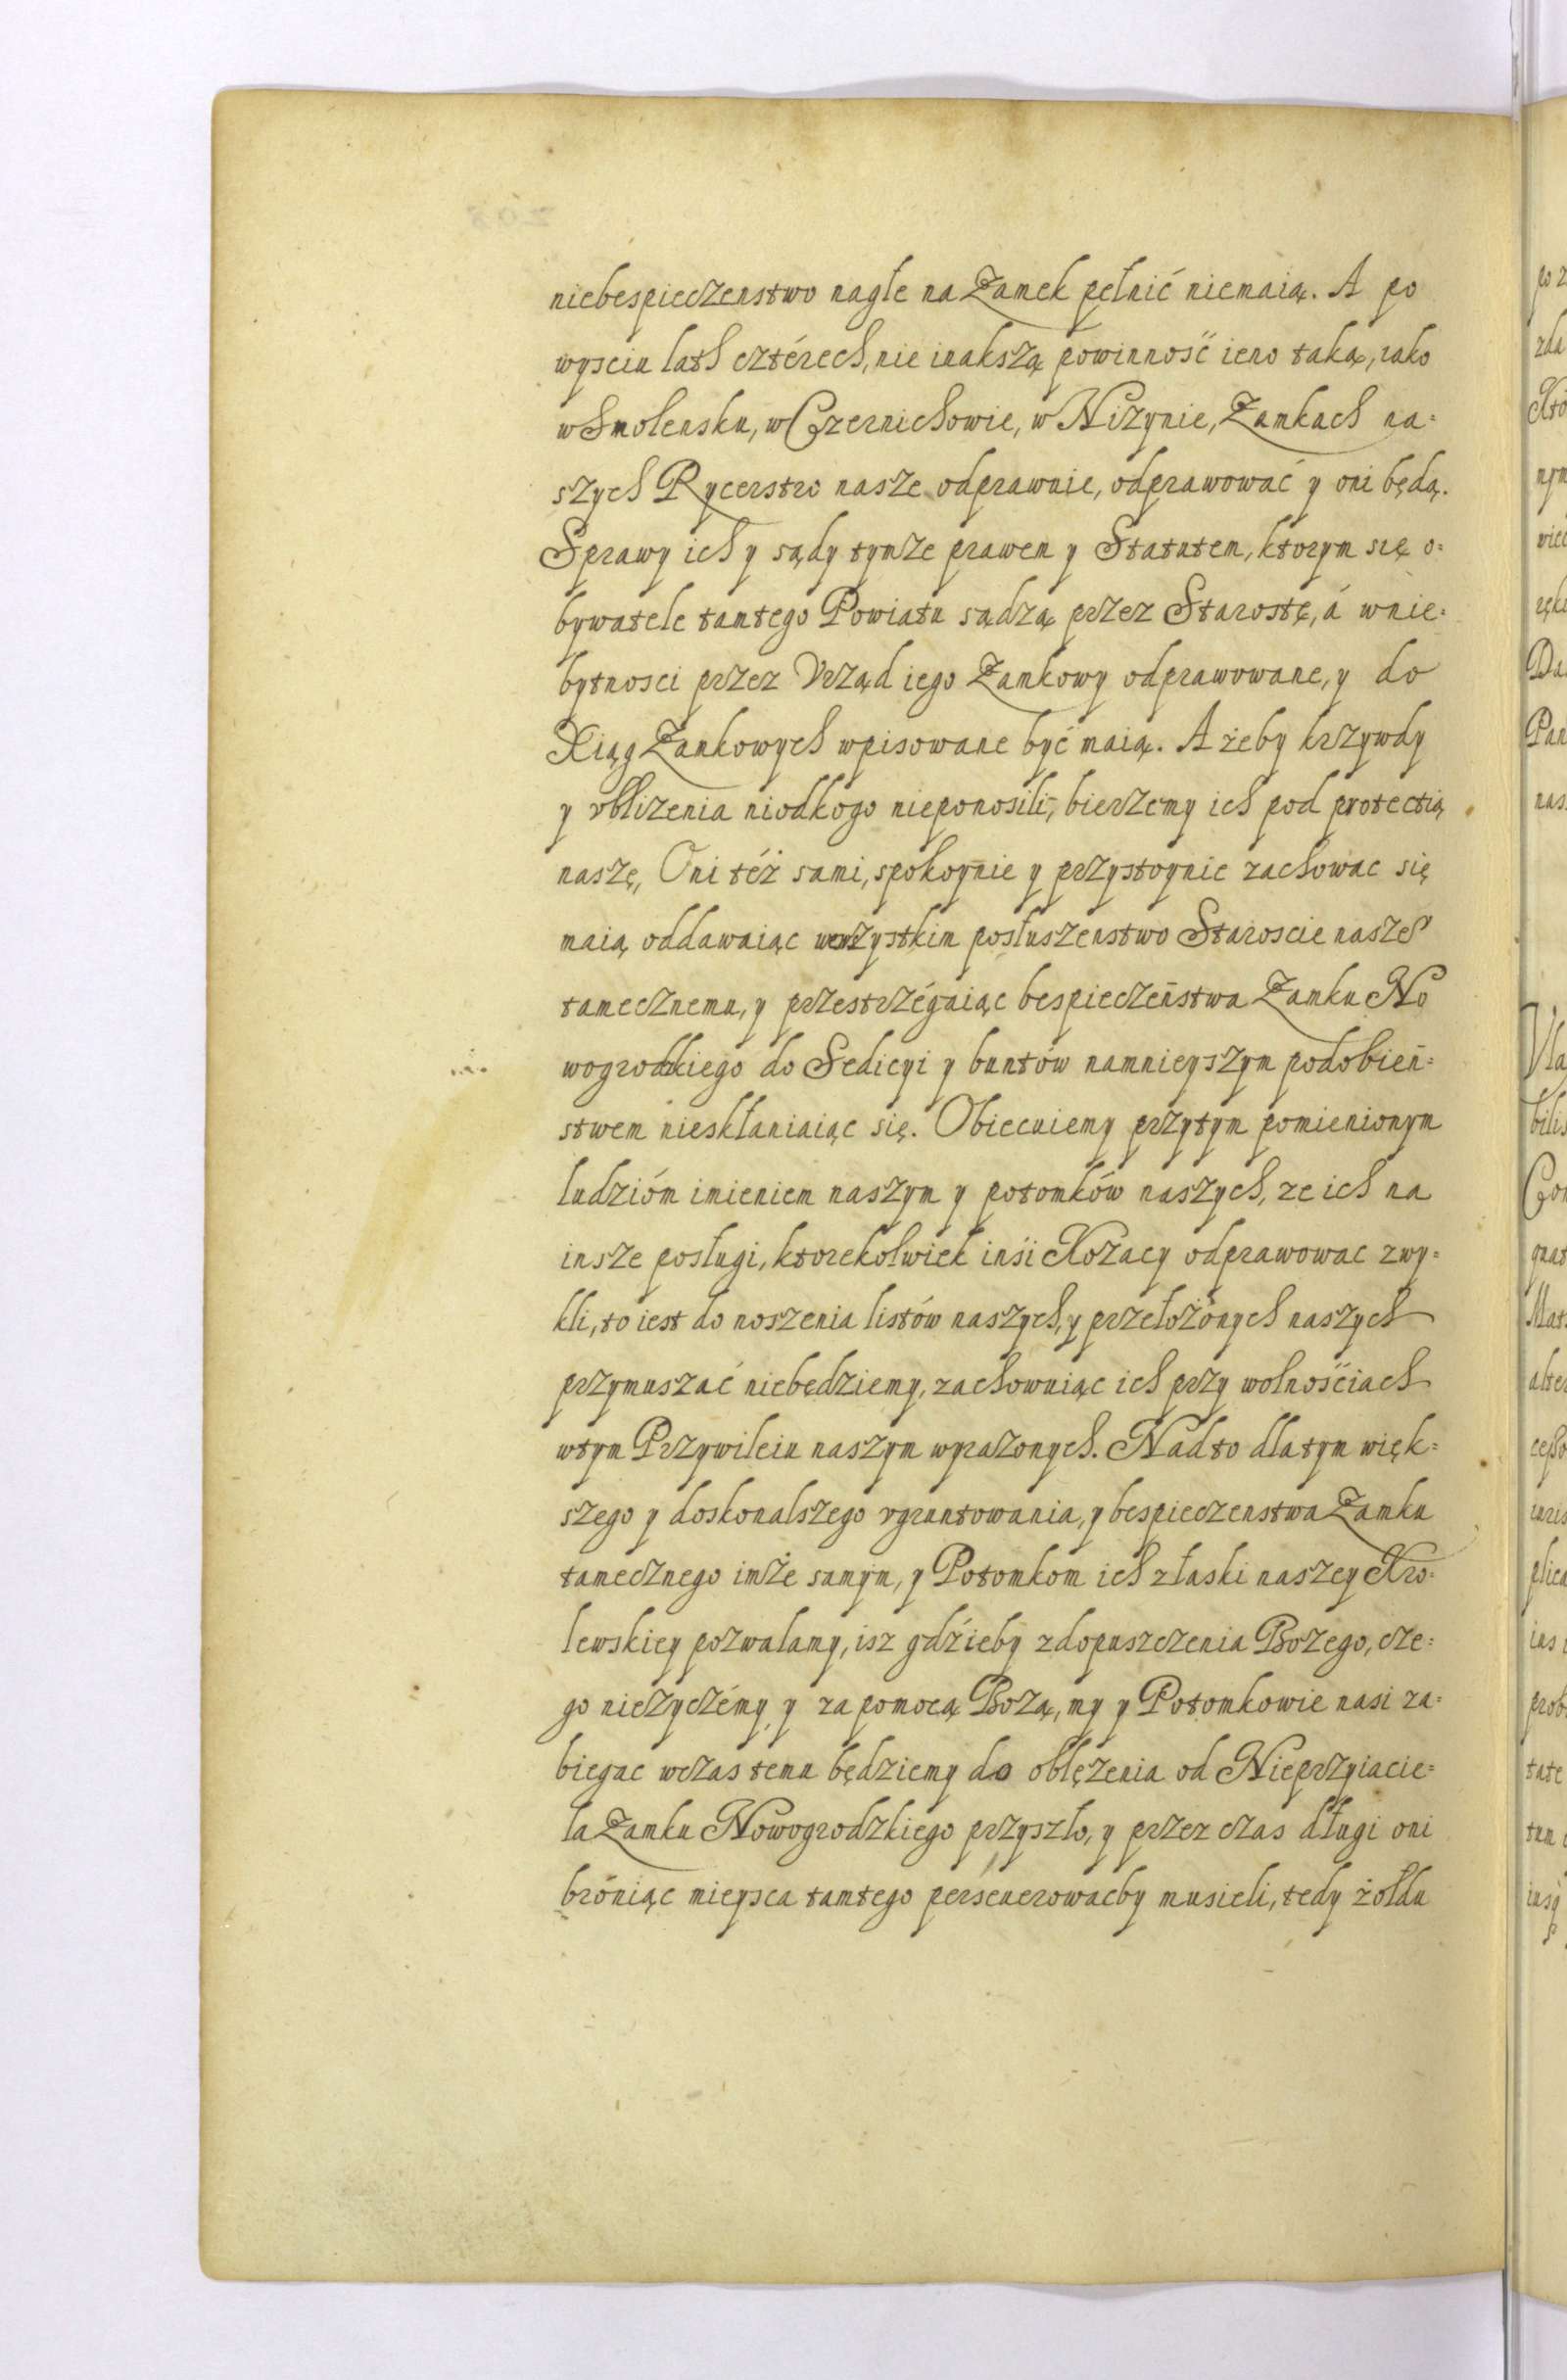 niebespieczenstwo nagłe na Zamek pełnić niemaią. A po
wysciu lath cztérech, nie inakszą powinność ieno taką, iako
w Smolensku, w Czernichowie, w Nizynie, Zamkach na=
szych Rycerstwo nasze odprawuie, odprawować y oni będą.
Sprawy ich y sądy tymże prawem y Statutem, ktorym się o=
bywatele tamtego Powiatu sądzą przez Starostę, á wnie=
bytnosci przez Vrząd iego Zamkowy odprawowane, y do
Xiąg Zamkowych wpisowane być maią. A żeby krzywdy
y vbliżenia niodkogo nieponosili, bierzemy ich pod protectią
naszę, Oni téż sami, spokoynie y przystoynie zachowac się
maią oddawaiąc wewszystkim posłuszenstwo Staroscie nasze
tamecznemu, y przestrzégaiąc bespieczeństwa Zamku No
wogrodzkiego do Sedicyi y buntów namnieyszym podobień=
stwem nieskłaniaiąc się. Obiecuiemy przytym pomienionym
ludzióm imieniem naszym y potomków naszych, ze ich na
insze posługi, ktorekolwiek inśi Kozacy odprawowac zwy=
kli, to iest do noszenia listów naszych, y przełożónych naszych
przymuszać niebędziemy, zachowuiąc ich przy wolnościach
wtym Przywileiu naszym wyrazonych. Nadto dlatym więk=
szego y doskonalszego vgruntowania, y bespieczenstwa Zamku
tamecznego imże samym, y Potomkom ich złaski naszey Kro=
lewskiey pozwalamy, isz gdźieby zdopuszczenia Bozego, cze=
go nieżyczémy y za pomocą Bozą, my y Potomkowie nasi za=
biegac wczas temu będziemy do oblężenia od Nieprzyiacie=
la Zamku Nowogrodzkiego przyszło, y przez czas długi oni
bróniąc mieysca tamtego perseuerowacby musieli, tedy żołdu